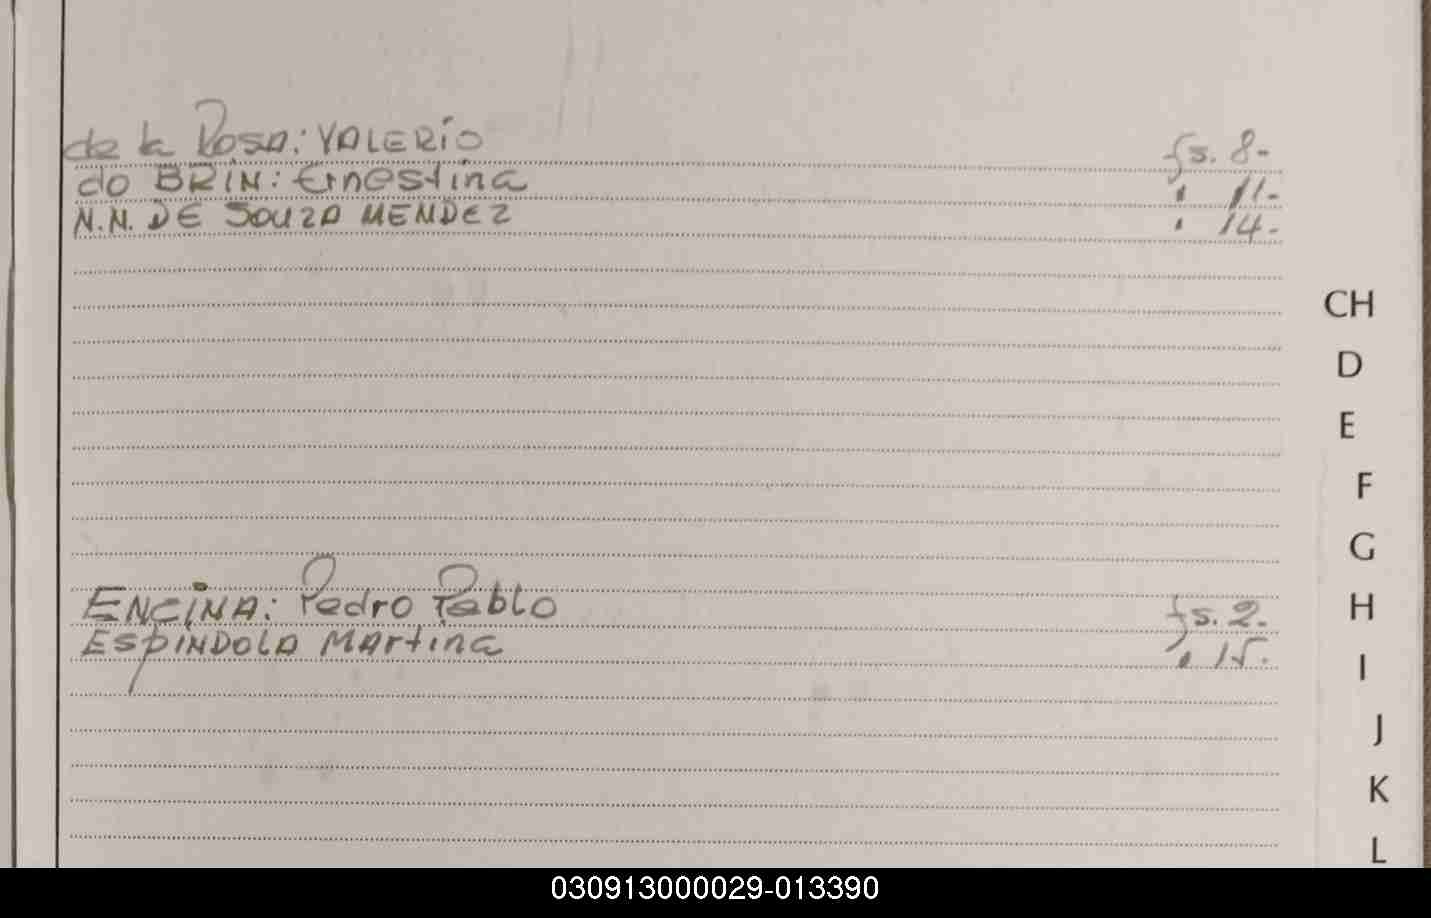 de la Rosa: VALERIO fs. 8.-
do BRIN: Ernestina " 11.-
N.N. DE SOUZA MENDEZ " 14.-
CH
D
E
F
G
ENCINA: Pedro Pablo fs. 2.-
H
ESPINDOLA MArtina " 15.-
I
J
K
L
030913000029-013390